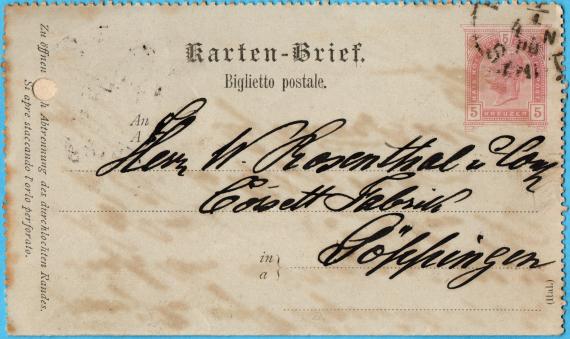 Karten-Brief.
Biglietto postale.
An
A
Herrn W. Rosenthal u Comp
Corsett Fabrik
in
a
Göppingen
(Ital.)
5 KREUZER 5
Zu öffnen durch Abtrennung des durchlochten Randes.
Si apre staccando l'orlo perforato.